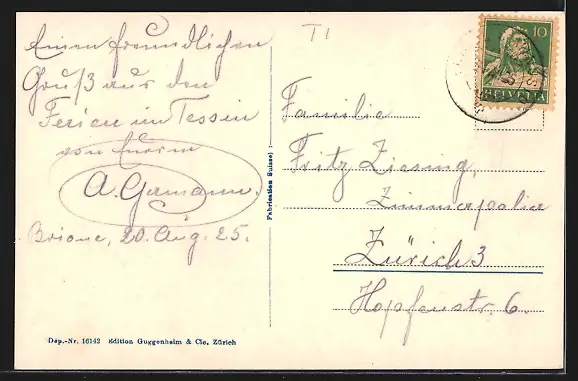 Einen freundlichen
Gruß aus den
Ferien im Tessin
von Eurem
A. Gamann.
Brione, 20. Aug. 25.
Dép.-Nr. 16142 Edition Guggenheim & Cie. Zürich
Fabrication Suisse
TI
10
HELVETIA
Familie
Fritz Ziesing,
Zimmerpolier
Zürich 3
Hopfenstr. 6.